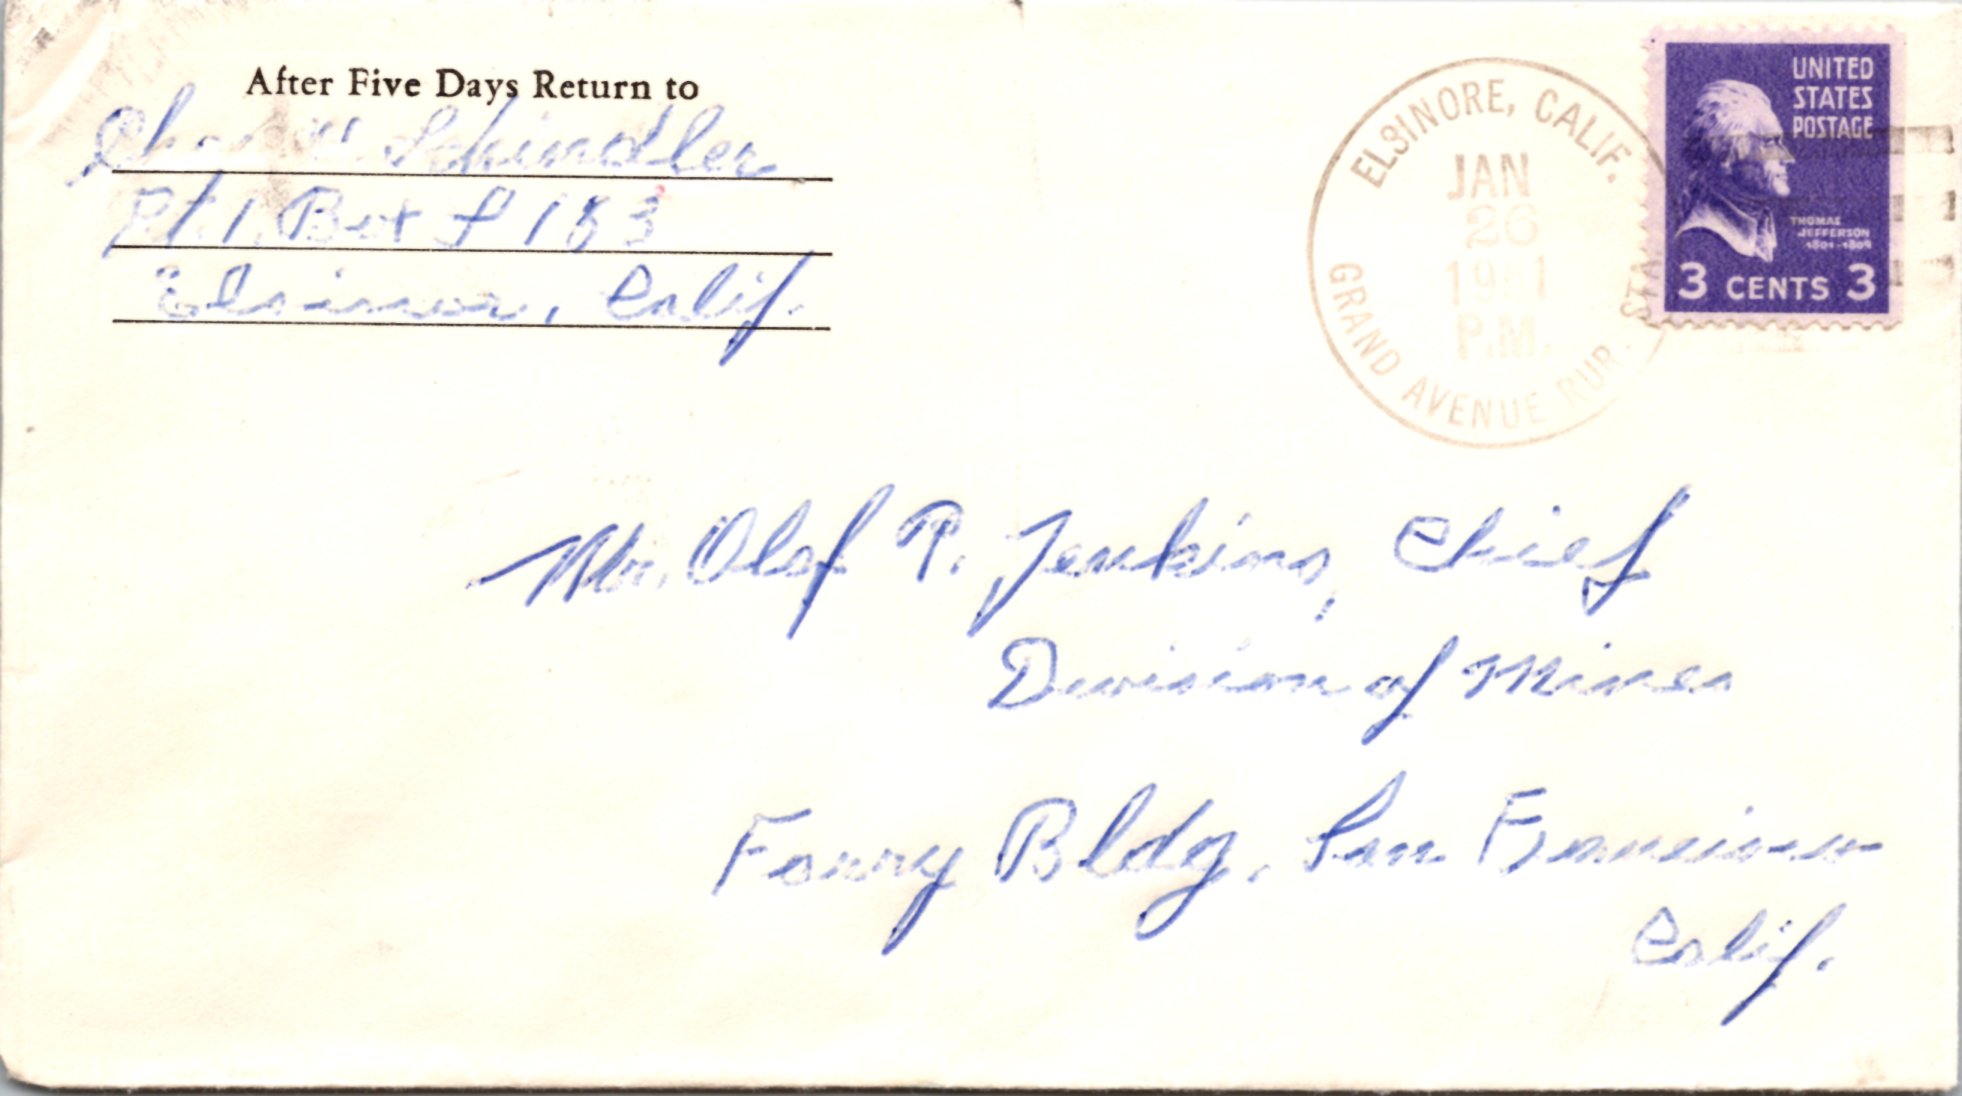 After Five Days Return to
Schindler
Rt. 1, Box S 183
Elsinore, Calif.
ELSINORE, CALIF.
JAN
26
P.M.
GRAND AVENUE RUR. STA.
UNITED
STATES
POSTAGE
THOMAS
JEFFERSON
1801-1809
3 CENTS 3
Mr. Olaf P. Jenkins, Chief
Division of Mines
Ferry Bldg, San Francisco
Calif.